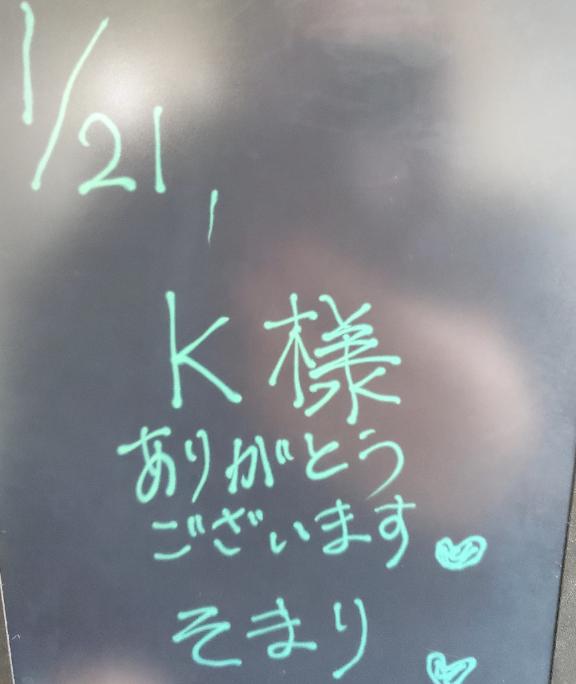 1/21,
K様
ありがとう
ございます♥
そまり♥